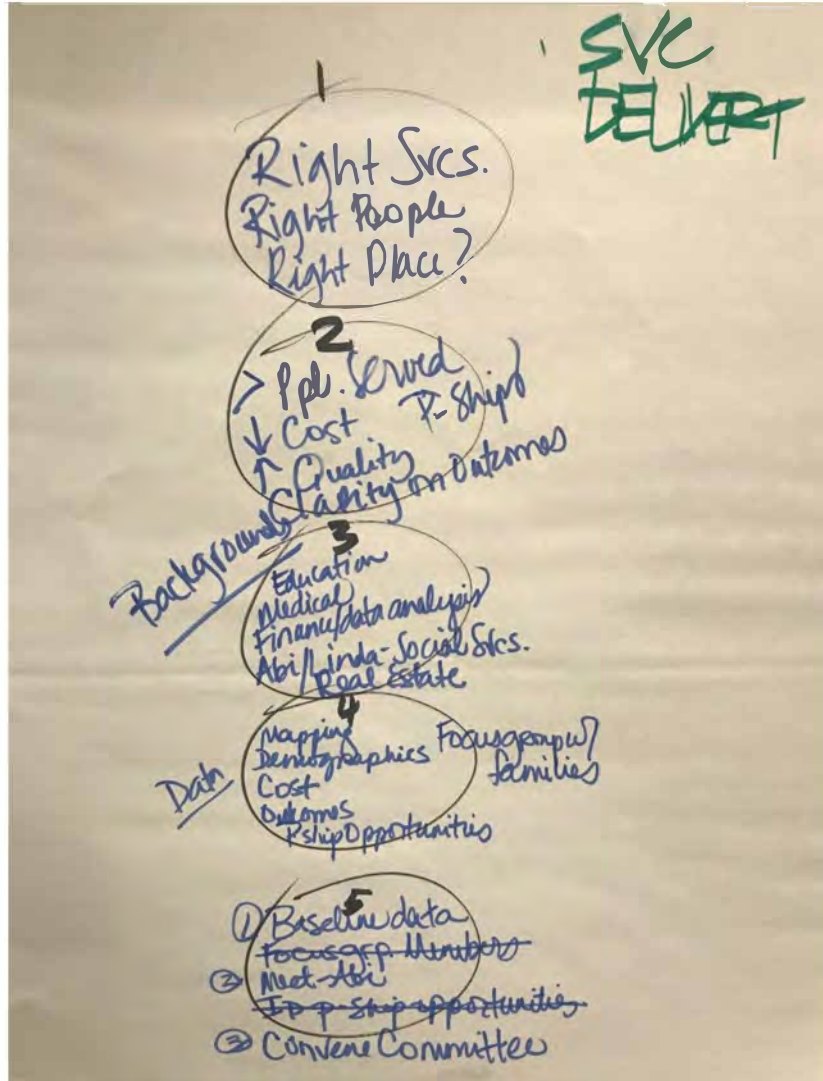 SVC
DELIVERY
1
Right Svcs.
Right People
Right Place?
2
> Ppl. Served
P-Ships
↓ Cost
↑ Quality
Clarity on Outcomes
Background
3
Education
Medical
Finance/data analysis
Abi/Linda-Social Svcs.
Real Estate
4
Mapping
Demographics
Focus group w/
families
Data
Cost
Outcomes
P'ship Opportunities
5
① Baseline data
Focus grp. Members
② Meet-Abi
ID p-ship opportunities
③ Convene Committee